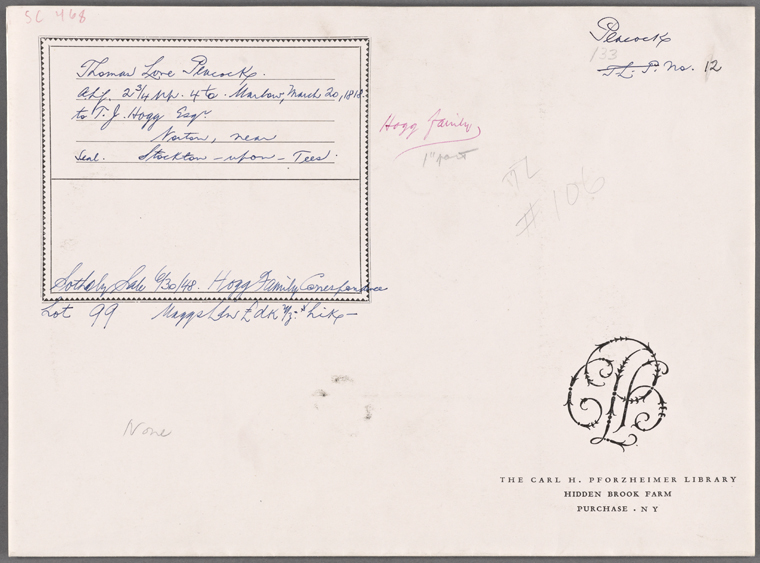 SC 468
Peacock
133
T.L.P. No. 12
Thomas Love Peacock.
ALS. 2 3/4 pp. 4to. Marlow, March 20, 1818.
to T. J. Hogg Esqr
Norton, near
Seal. Stockton-upon-Tees.
Hogg Family
1st part
#106
Sotheby Sale 6/30/48. Hogg Family Correspondence
Lot 99 Maggs
None
THE CARL H. PFORZHEIMER LIBRARY
HIDDEN BROOK FARM
PURCHASE . NY